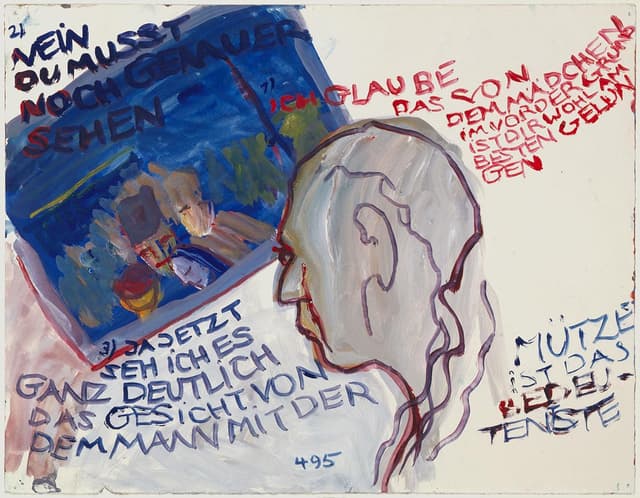 2) NEIN
DU MUSST
NOCH GENAUER
SEHEN
1)
ICH GLAUBE
DAS VON
DEM MÄDCHEN
IM VORDERGRUND
IST DIR WOHL AM
BESTEN GELUN
GEN
3) JA JETZT
SEH ICH ES
GANZ DEUTLICH
DAS GESICHT VON
DEM MANN MIT DER
MÜTZE
IST DAS
BEDEU-
TENSTE
495